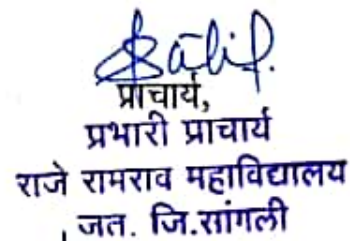 प्राचार्य,
प्रभारी प्राचार्य
राजे रामराव महाविद्यालय
, जत. जि.सांगली